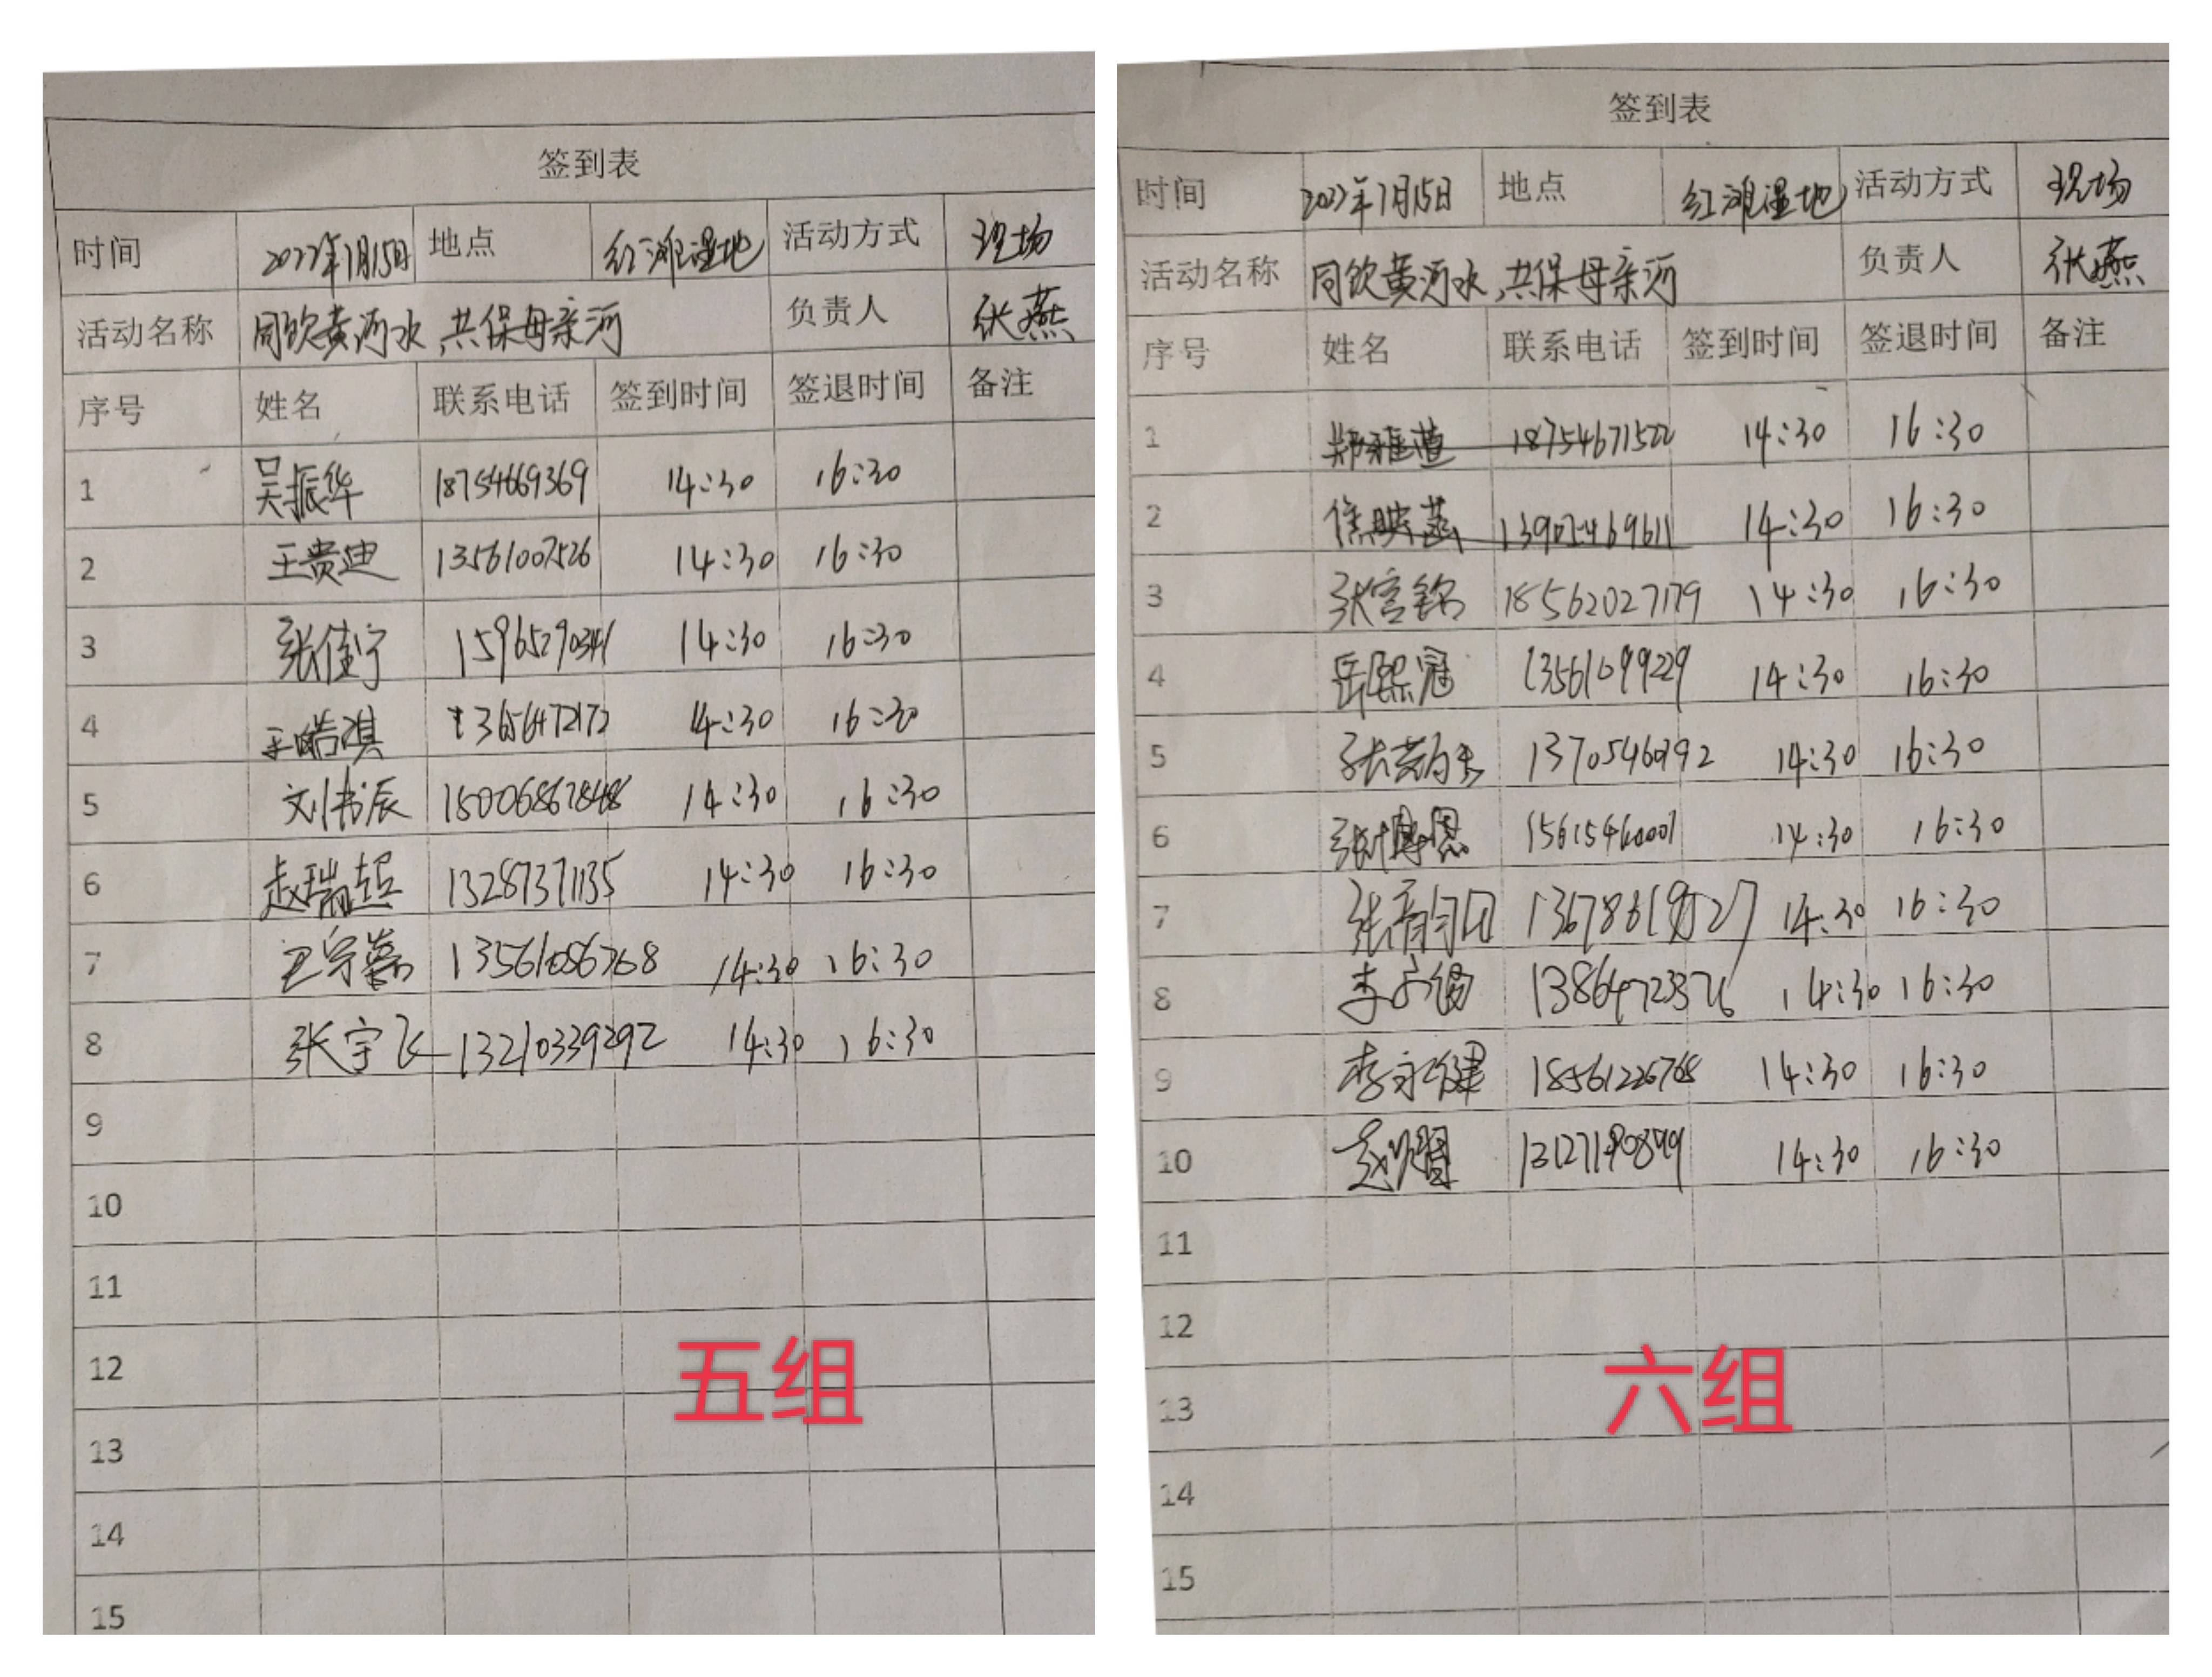 签到表
时间 2022年7月15日 地点 红滩湿地 活动方式 现场
活动名称 同饮黄河水,共保母亲河 负责人 张燕
序号 姓名 联系电话 签到时间 签退时间 备注
1 吴振华 18754669369 14:30 16:30
2 王贵迪 13561007526 14:30 16:30
3 张佳宁 15965290341 14:30 16:30
4 王皓淇 13656472172 14:30 16:30
5 刘书辰 14:30 16:30
6 赵瑞喆 13287371135 14:30 16:30
7 14:30 16:30
8 张宇飞 13210339292 14:30 16:30
9
10
11
12
13
14
15
五组
签到表
时间 2022年7月15日 地点 红滩湿地 活动方式 现场
活动名称 同饮黄河水,共保母亲河 负责人 张燕
序号 姓名 联系电话 签到时间 签退时间 备注
1 18754671522 14:30 16:30
2 14:30 16:30
3 张宫铭 18562027179 14:30 16:30
4 岳熙冠 13561099229 14:30 16:30
5 14:30 16:30
6 张博恩 14:30 16:30
7 14:30 16:30
8 李 14:30 16:30
9 李永健 18561226768 14:30 16:30
10 14:30 16:30
11
12
13
14
15
六组